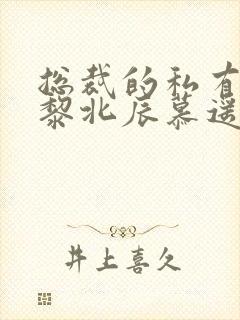 总裁的私有
黎北辰慕遥
井上喜久